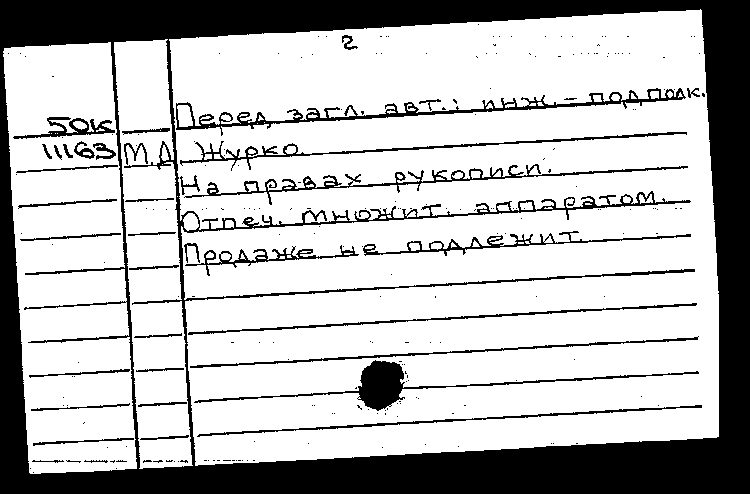 2
50к Перед загл. авт.: инж.-подполк.
11163 М.Д. Журко.
На правах рукописи.
Отпеч. множит. аппаратом.
Продаже не подлежит.